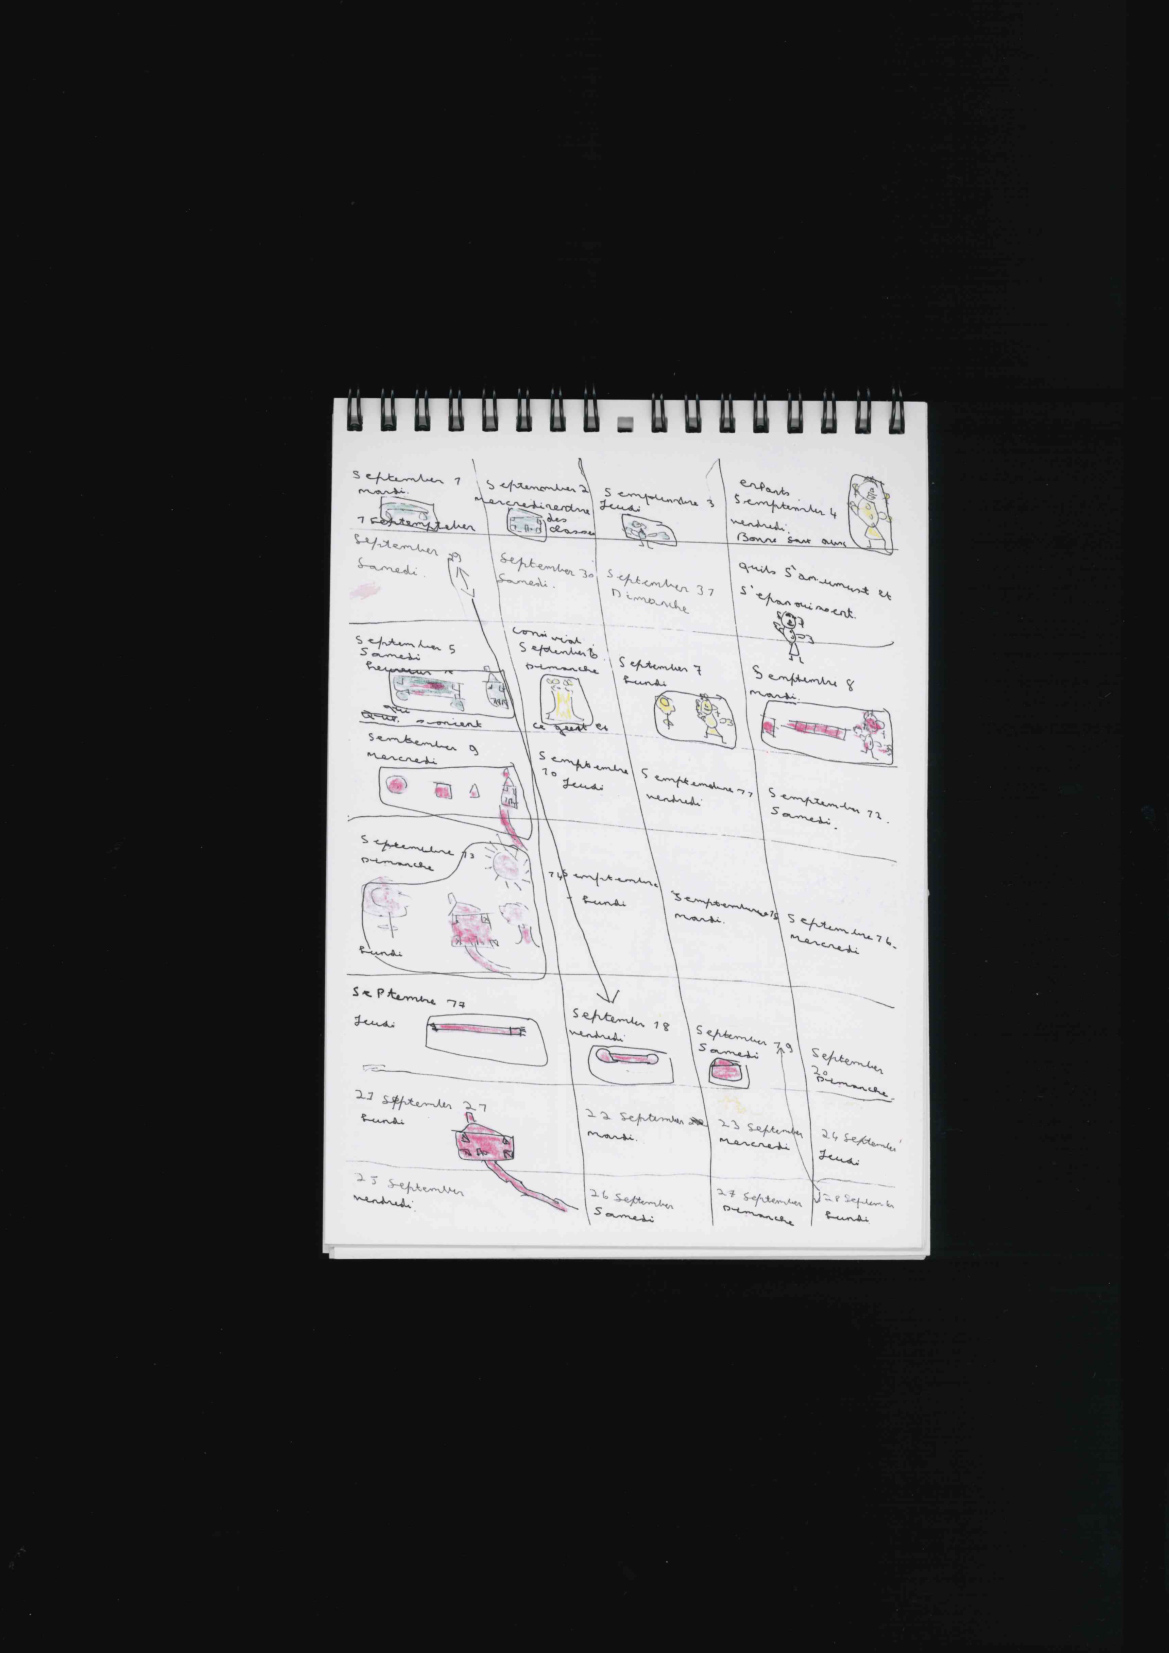 September 1
mardi.
September 2
mercredi rentrée
des
classes
Semptembre 3
Jeudi
enfants
Semptembre 4
vendredi.
Bonne
September 29
Samedi.
September 30
Samedi.
September 31
Dimanche
quils s'amusent et
s'epanouissent.
September 5
Samedi
heureux
qui
convivial
September 6
Dimanche
ce quest
September 7
Lundi
Semptembre 8
mardi.
Sembember 9
mercredi
Semptembre
10 Jeudi
Semptembre 11
vendredi
Semptember 12.
Samedi.
Septembre 13
Dimanche
Lundi
14 Semptembre
- Lundi
Semptembre 15
mardi.
Septembre 16.
mercredi
Septembre 17
Jeudi
September 18
vendredi
September 19
Samedi
September
20
Dimanche.
21 September 21
Lundi
22 September
mardi.
23 September
mercredi
24 September
Jeudi
25 September
vendredi.
26 September
Samedi
27 September
Dimanche
28 September
Lundi